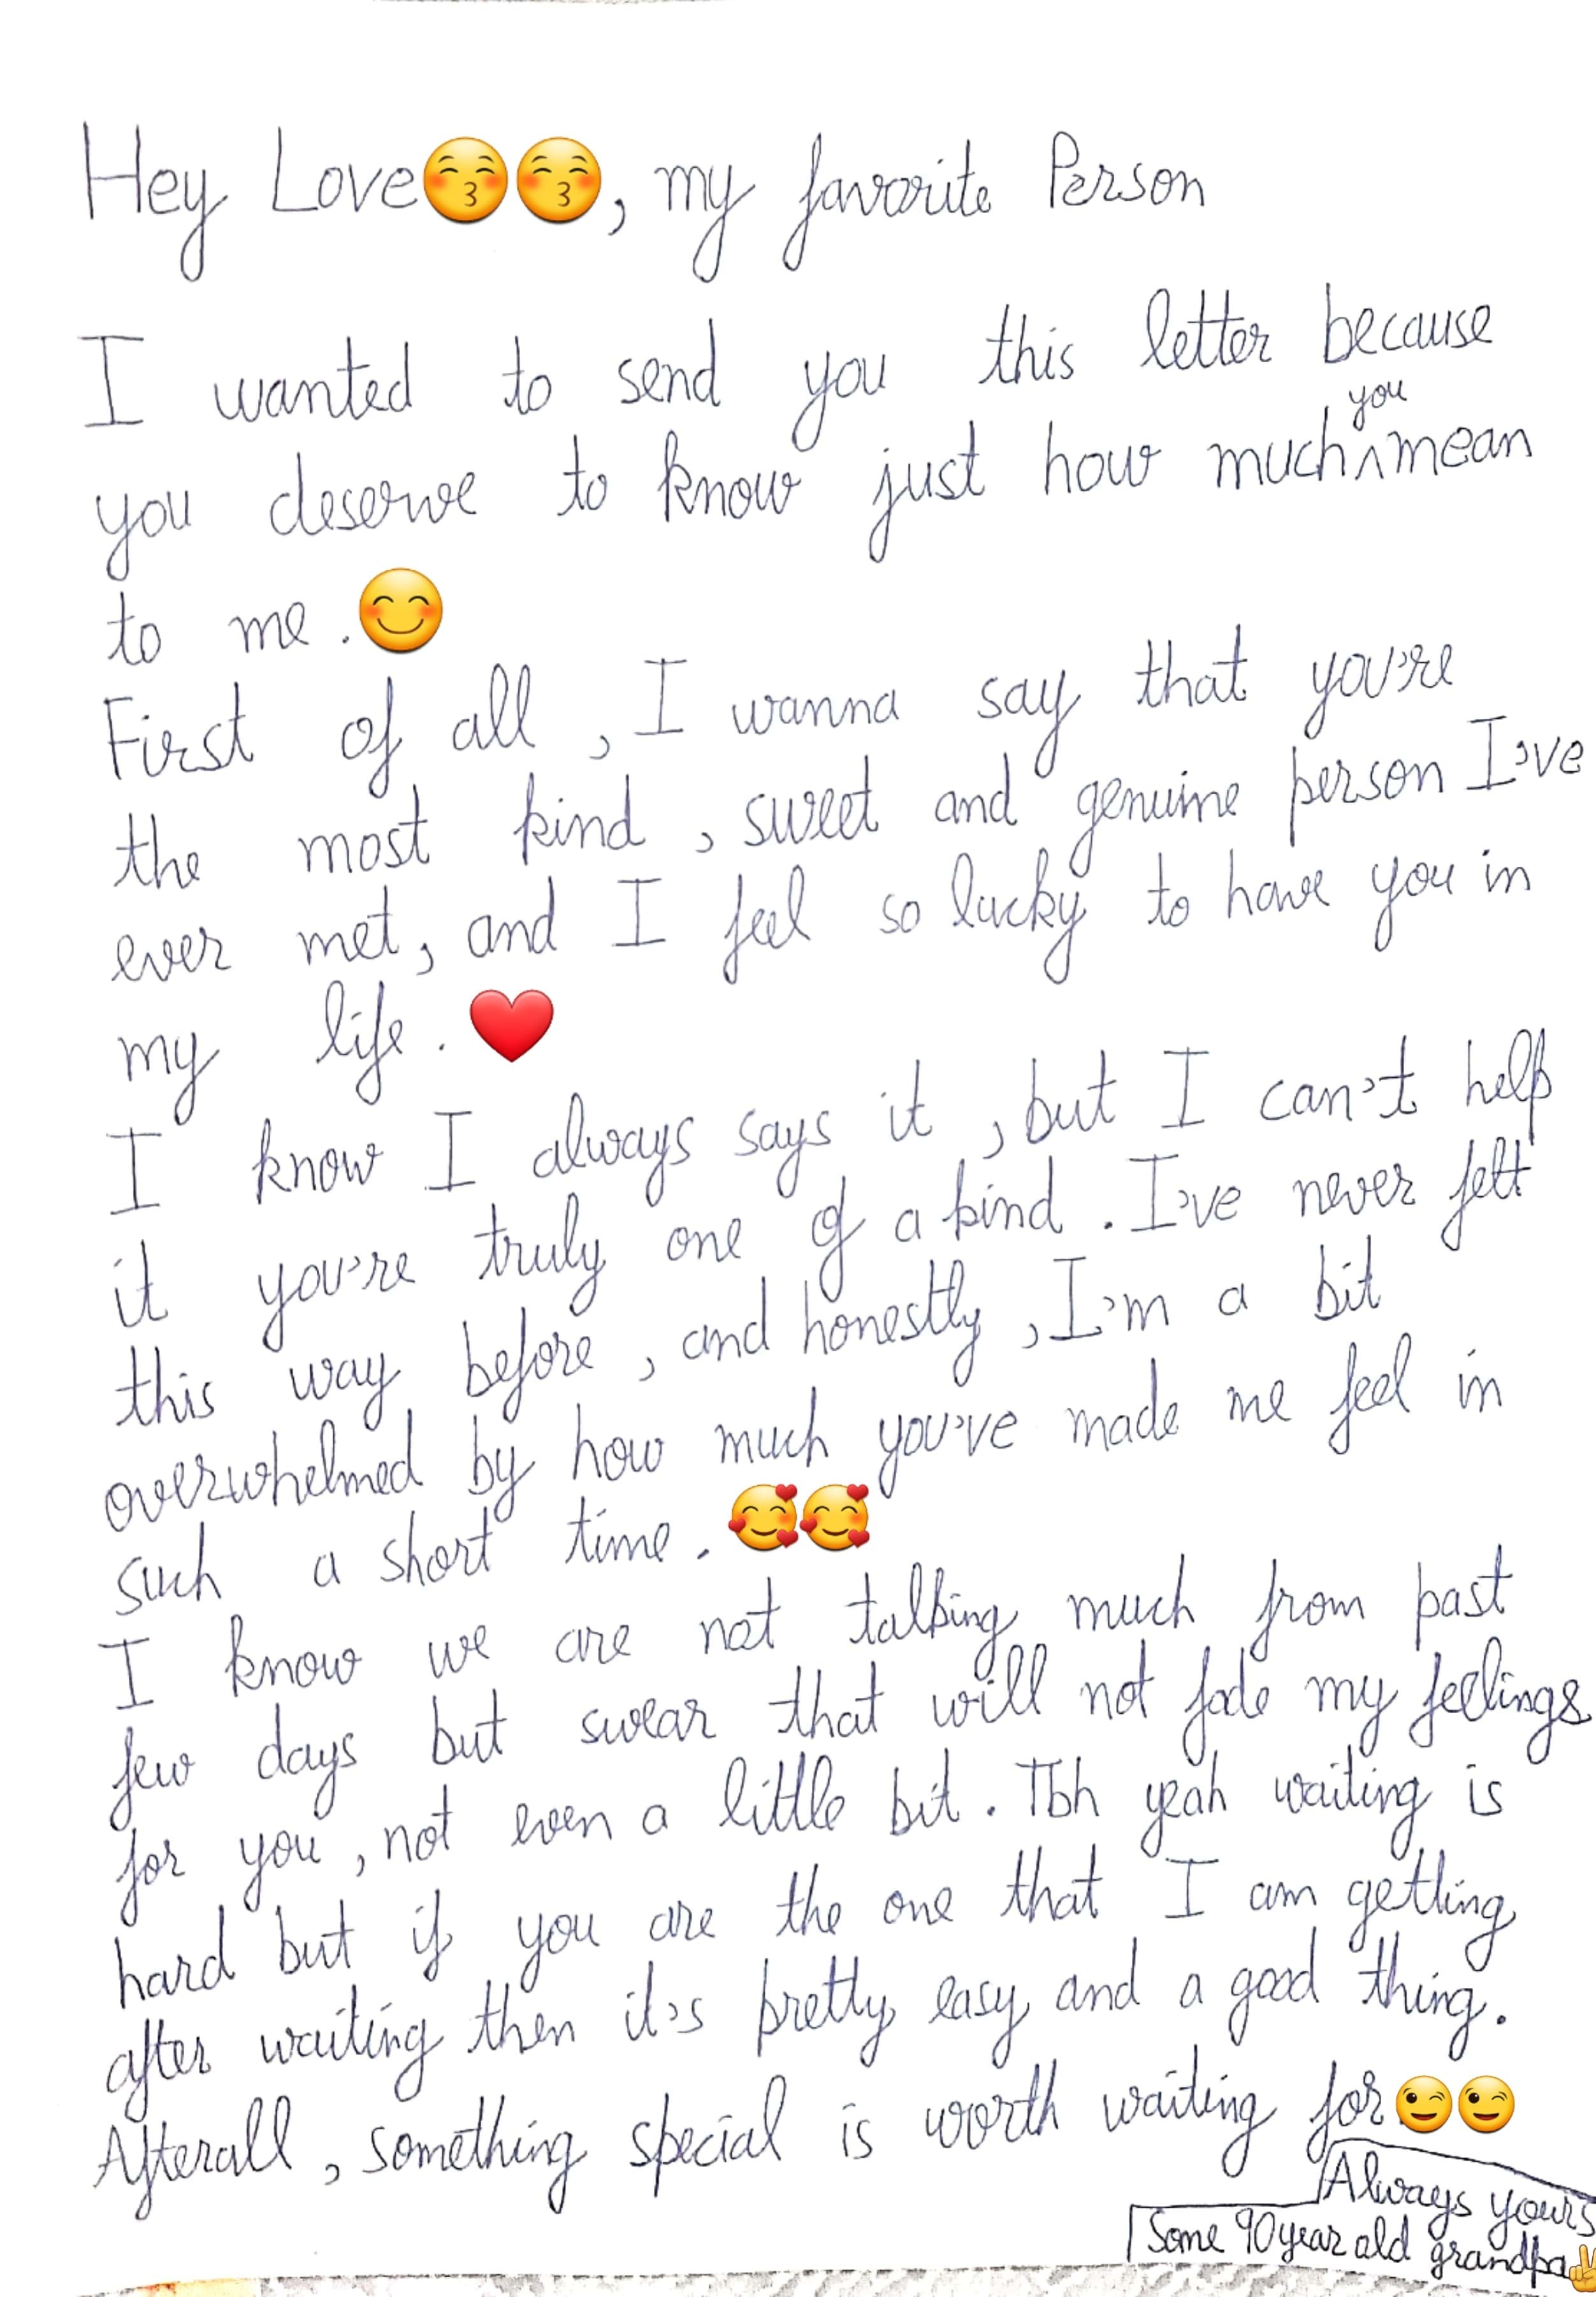 Hey Love😚😚, my favorite Person
I wanted to send you this letter because
you deserve to know just how much you mean
to me.😊
First of all, I wanna say that you're
the most kind, sweet and genuine person I've
ever met, and I feel so lucky to have you in
my life.❤️
I know I always says it, but I can't help
it you're truly one of a kind. I've never felt
this way before, and honestly, I'm a bit
overwhelmed by how much you've made me feel in
such a short time.🥰🥰
I know we are not talking much from past
few days but swear that will not fade my feelings
for you, not even a little bit. Tbh yeah waiting is
hard but if you are the one that I am getting
after waiting then it's pretty easy and a good thing.
Afterall, something special is worth waiting for😉😉
Always yours
Some 90 year old grandpa✌️